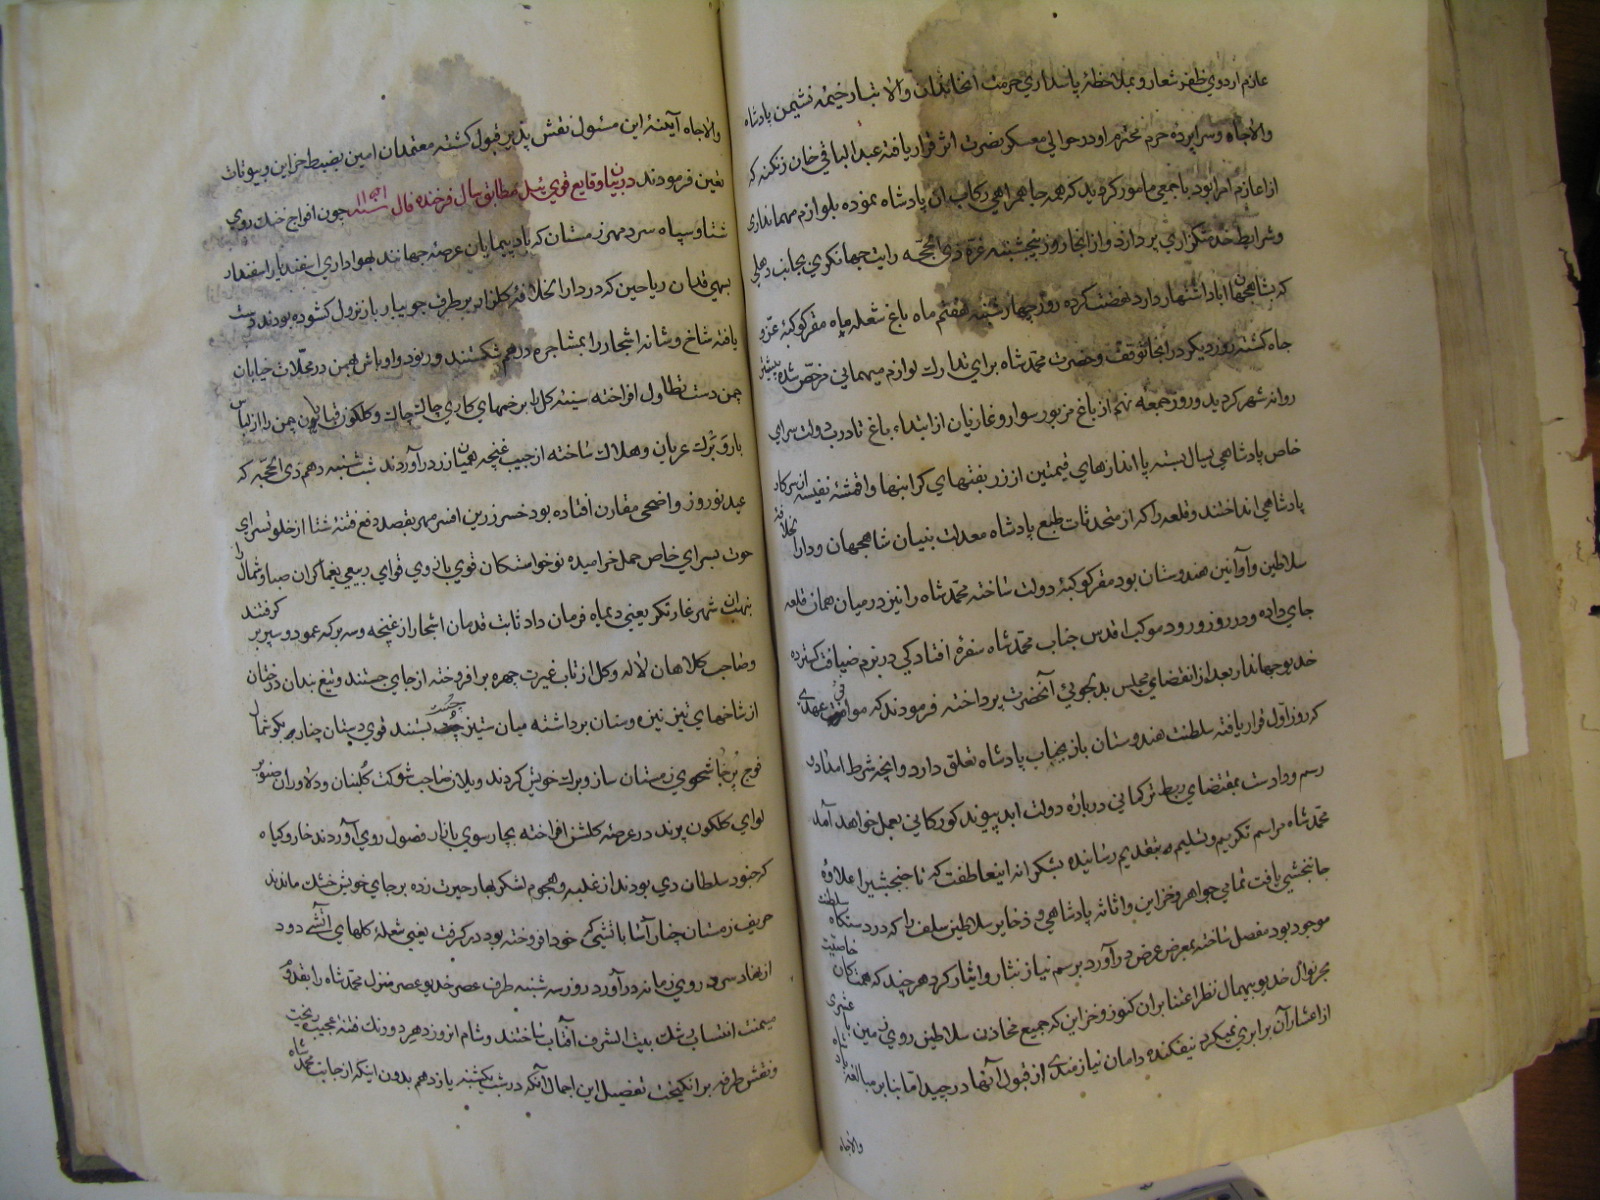 عازم اردوی ظفر شعار و بملاحظۀ پاسداری حرمت انخاندان والا تبار خیمۀ نشیمن پادشاه
والاجاه و سراپردۀ حرم محترم او در حوالی معسکر نصرت اثر قرار یافته عبدالباقی خان زنکنه که
از اعاظم امرا بود با جمعی مامور کردید که همه جا همراهی رکاب ان پادشاه نموده بلوازم مهمانداری
و شرایط خدمتگزاری پردازد و از انجا روز پنجشنبه غرۀ ذی الحجّه رایت جهانکیری بجانب دهلی
که بشاهجهان اباد اشتهار دارد نهضت کرده روز چهارشنبه هفتم ماه باغ شعله ماه مقر کوکبۀ عزّ و
جاه کشته روز دیکر در انجا توقف و حضرت محمد شاه برای تدارک لوازم میهمانی مرخص شده پیشتر
روانه شهر کردید و روز جمعه نهم از باغ مزبور سوار و غازیان از ابتداء باغ تا درب دولت سرای
خاص پادشاهی یسال بسته پا اندازهای قیمتین از زربفتهای کرانبها و اقمشۀ نفیسه از سرکار
پادشاهی انداختند و قلعه را که از متحدثات طبع پادشاه معدلت بنیان شاهجهان و دار الخلافۀ
سلاطین و آوانین هندوستان بود مقر کوکبۀ دولت ساخته محمد شاه را نیز در میان همان قلعه
جای داده و در روز ورود موکب اقدس جناب محمد شاه سفرۀ افتادکی در بزم ضیافت کسترده
خدیو جهاندار بعد از انقضای مجلس بدلجویی آنحضرت پرداخته فرمودند که موافق عهدی
که روز اول قرار یافته سلطنت هندوستان باز بجناب پادشاه تعلق دارد و انچه شرط امداد و
رسم وداد است بمقتضای ربط ترکمانی دربارۀ دولت ابد پیوند کورکانی بعمل خواهد آمد
محمد شاه مراسم تکریم و تسلیم بتقدیم رسانیده بشکرانۀ اینعاطفت که تاج بخشیرا علاوۀ
جانبخشی یافت تمامی جواهر و خزاین و اثاثۀ پادشاهی و ذخایر سلاطین سلف را که در دستکاه سلطنت
موجود بود مفصل ساخته بمعرض عرض در آورد برسم نیاز نثار و ایثار کرد هر چند که همت کان خاصیت
بحر نوال خدیو بیهمال نظر اعتنا بران کنوز و خزاین که جمیع مخازن سلاطین روی زمین با عشری
از اعشار آن برابری نمیکرد نیفکنده دامان نیازمندی از قبول آنها در چید اما بنا بر مبالغۀ پادشاه
والاجاه
والاجاه آینۀ این مسئول نقش پذیر قبول کشته معتمدان امین بضبط خزاین و بیوتات
تعین فرمودند در بیان وقایع قوی ئیل مطابق سال فرخنده فال سنه ۱۱۵۱ چون افواج خنک روی
شتا و سپاه سرد مهر زمستان که بادپیمایان عرصۀ جهانند بهواداری اسفندیار اسفندار
بسهی قدان ریاحین که در دار الخلافۀ کلزار بر طرف جویبار بار نزول کشوده بودند دست
یافته شاخ و شانۀ اشجار را بمشاجره درهم شکستند و رنود و اوباش بهمن در محلات خیابان
چمن دست تطاول افراخته سینۀ کل را بزخمهای کاری چاک چاک و کلکون قبایان چمن را از لباس
بار و برک عریان و هلاک ساخته از جیب غنچه همیان زر درآوردند شب شنبه دهم ذی الحجّه که
عید نوروز و اضحی مقارن افتاده بود خسرو زرین افسر مهر بقصد دفع فتنۀ شتا از خلوتسرای
حوت بسرای خاص حمل خرامیده نوخواستکان قوی بازوی قوای ربیعی یغماکران صبا و شمال را
بنهبان شهر غارتکر یعنی دیماه فرمان داد ثابت قدمان اشجار از غنچه و سه برکه عمود و سپر بر کرفتند
و صاحب کلاهان لاله و کل از تاب غیرت چهره بر افروخته از جای جستند و تیغ بندان درختان
از شاخهای تیز نیزه و سنان برداشته میان ستیز چست بستند قوی دستان چنار بکوشمال
فوج پرخاشجوی زمستان ساز و برک خویش کردند و یلان صاحب شوکت کلبنان و دلاوران صنوبر
لوای کلکون پرند در عرصۀ کلشن افراخته بچار سوی بازار فصول روی آوردند خار و کیاه
که جنود سلطان دی بودند از غلبه و هجوم لشکر بهار حیرت زده بر جای خویش خشک ماندند
حریف زمستان چنار آسا باتشی که خود افروخته بود در کرفت یعنی شعلۀ کلهای آتشی دود
از نهاد سرد روی زمانه درآورد روز سه شنبه طرف عصر خدیو عصر منزل محمد شاه را بقدوم
میمنت انتساب رشک بیت الشرف آفتاب ساختند و شام انروز دهر دو رنک فتنۀ عجیبه ریخت
و نقش طرفه بر انکیخت تفصیل این اجمال آنکه در شب یکشنبه یازدهم بدون اینکه از جانب محمد شاه